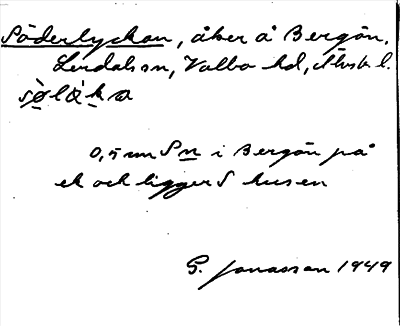 Söderlyckan, åker å Bergön,
Lerdals sn, Valbo hd, Älvsb. l.
sø̀lák̠a
0,5 mm S n i Bergön på
ek och ligger S husen
G. Jonasson 1949